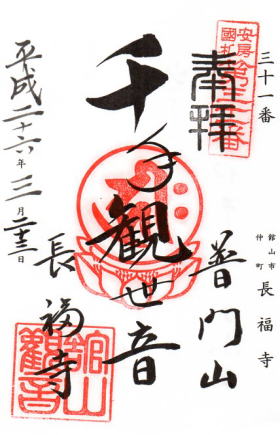 三十一番
館山市
仲町
長福寺
奉拝
安房
國札
第三十一番
普門山
千手観世音
長福寺
平成二十六年三月二十三日
館山
觀音